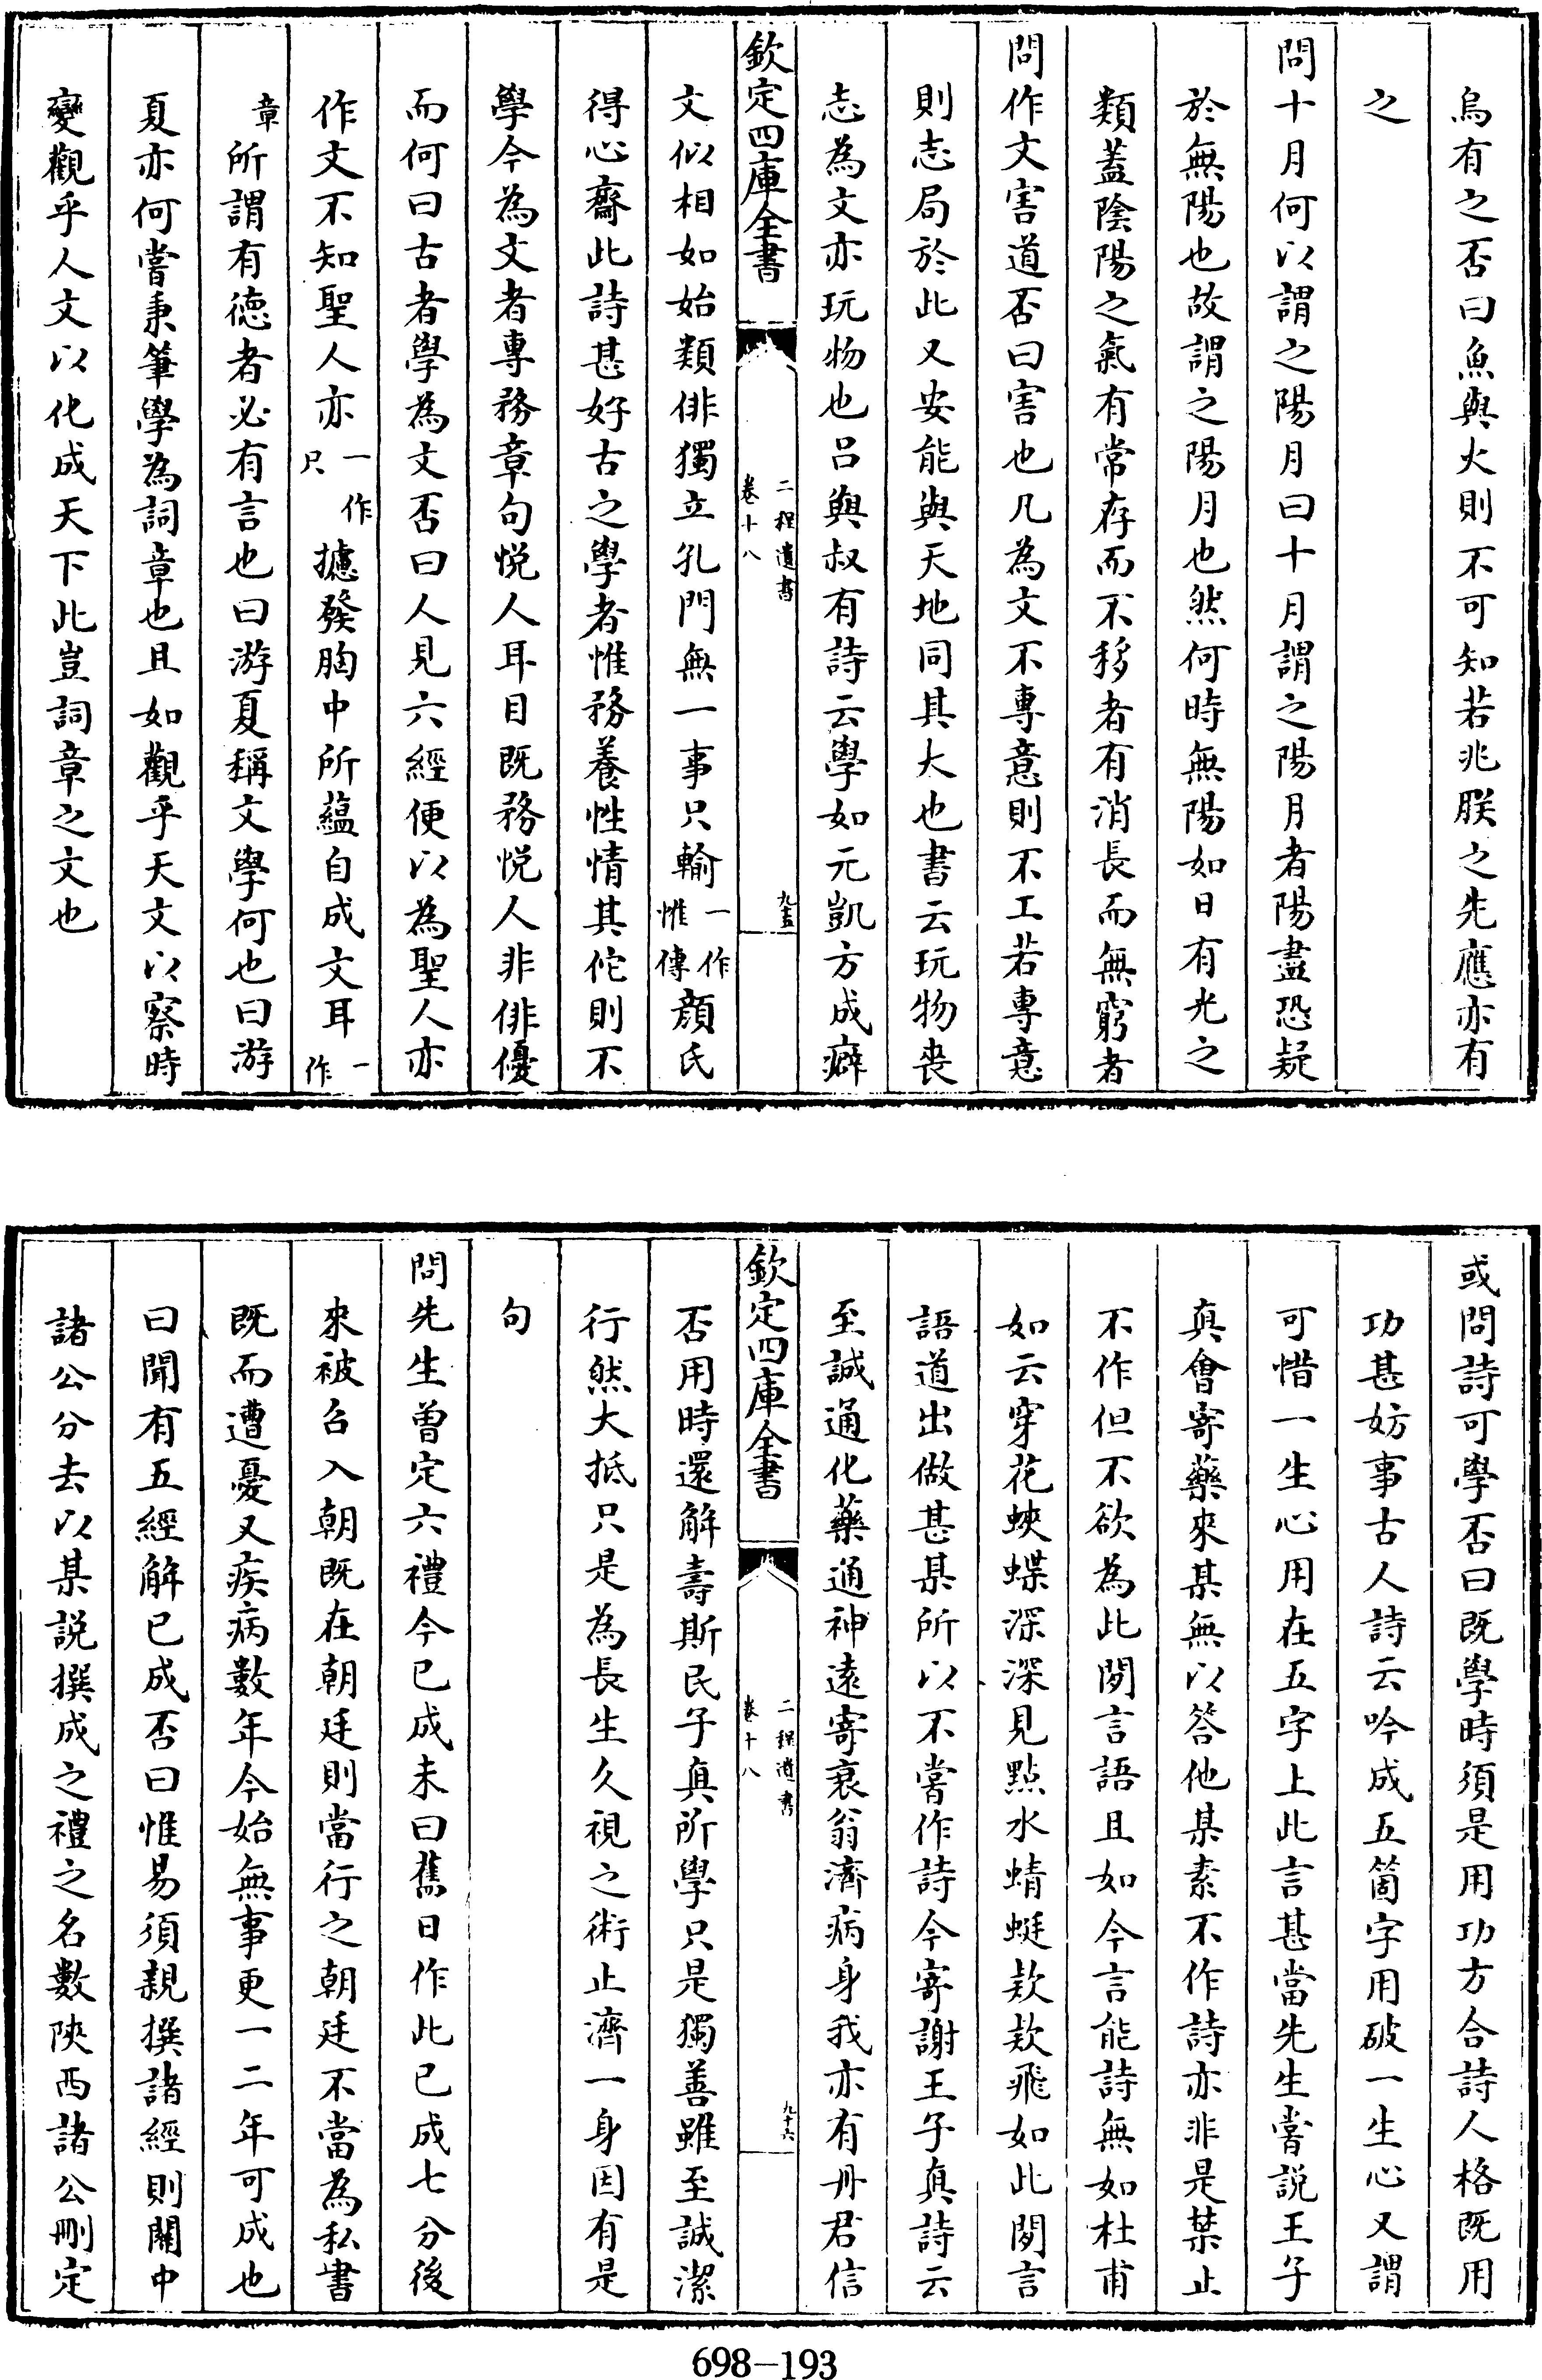 烏有之否曰魚與火則不可知若兆朕之先應亦有
之
問十月何以謂之陽月曰十月謂之陽月者陽盡恐疑
於無陽也故謂之陽月也然何時無陽如日有光之
類蓋陰陽之氣有常存而不移者有消長而無窮者
問作文害道否曰害也凡為文不專意則不工若專意
則志局於此又安能與天地同其大也書云玩物喪
志為文亦玩物也呂與叔有詩云學如元凱方成癖
欽定四庫全書
二程遺書
卷十八
九十五
文似相如始類俳獨立孔門無一事只輸一作惟傳顔氏
得心齋此詩甚好古之學者惟務養性情其佗則不
學今為文者專務章句悅人耳目既務悅人非俳優
而何曰古者學為文否曰人見六經便以為聖人亦
作文不知聖人亦一作只攄發胸中所蘊自成文耳一作
章所謂有德者必有言也曰游夏稱文學何也曰游
夏亦何嘗秉筆學為詞章也且如觀乎天文以察時
變觀乎人文以化成天下此豈詞章之文也
或問詩可學否曰既學時須是用功方合詩人格既用
功甚妨事古人詩云吟成五箇字用破一生心又謂
可惜一生心用在五字上此言甚當先生嘗説王子
真曾寄藥來某無以答他某素不作詩亦非是禁止
不作但不欲為此閒言語且如今言能詩無如杜甫
如云穿花蛺蝶深深見點水蜻蜓款款飛如此閒言
語道出做甚某所以不嘗作詩今寄謝王子真詩云
至誠通化藥通神遠寄衰翁濟病身我亦有丹君信
欽定四庫全書
二程遺書
卷十八
九十六
否用時還解壽斯民子真所學只是獨善雖至誠潔
行然大抵只是為長生久視之術止濟一身因有是
句
問先生曽定六禮今已成未曰舊日作此已成七分後
來被召入朝既在朝廷則當行之朝廷不當為私書
既而遭憂又疾病數年今始無事更一二年可成也
曰聞有五經解已成否曰惟易須親撰諸經則關中
諸公分去以某説撰成之禮之名數陝西諸公刪定
698-193